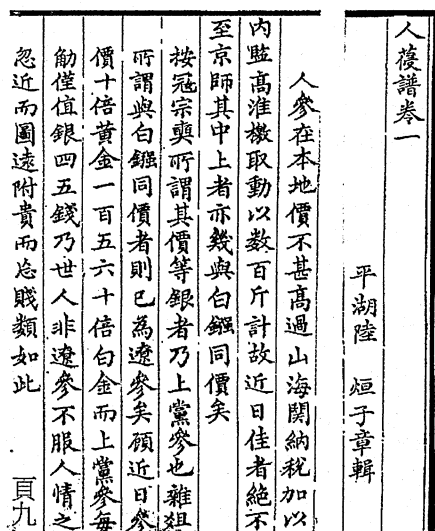 人葠譜卷一
平湖陸 烜子章輯
人參在本地價不甚高過山海関納稅加以
内監高淮檄取動以数百斤計故近日佳者絶不
至京師其中上者亦幾與白鏹同價矣
按冦宗奭所謂其價等銀者乃上黨參也雜俎
所謂與白鏹同價者則已為遼參矣顧近日參
價十倍黄金一百五六十倍白金而上黨參每
觔僅值銀四五錢乃世人非遼參不服人情之
忽近而圖遠附貴而忘賤類如此
頁九